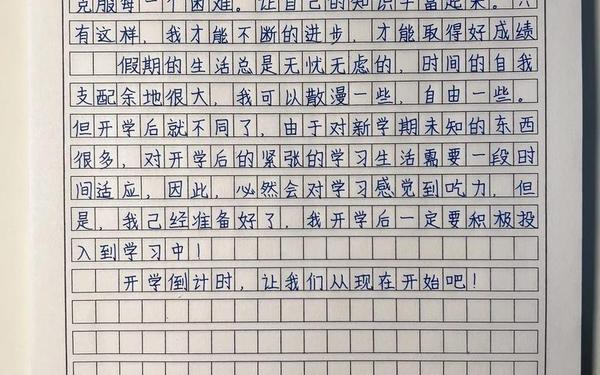 克服每一个困难。让自己的知识丰富起来。只
有这样，我才能不断的进步，才能取得好成绩
假期的生活总是无忧无虑的，时间的自我
支配余地很大，我可以散漫一些，自由一些。
但开学后就不同了，由于对新学期未知的东西
很多，对开学后的紧张的学习生活需要一段时
间适应，因此，必然会对学习感觉到吃力，但
是，我己经准备好了，我开学后一定要积极投
入到学习中！
开学倒计时，让我们从现在开始吧！